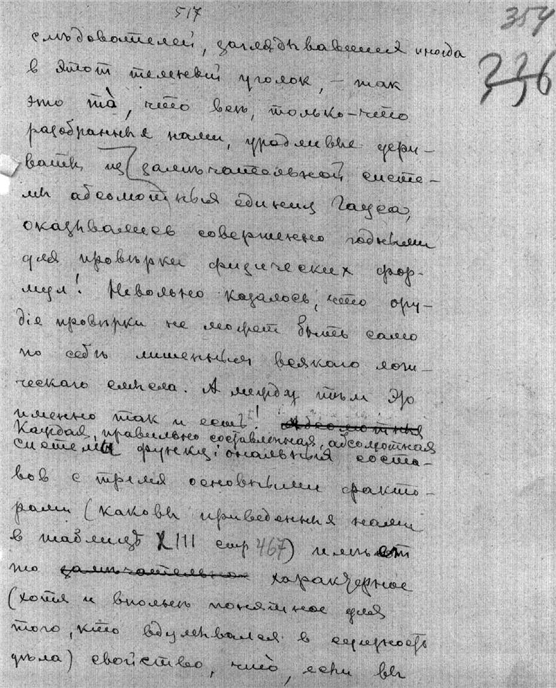 517
354
336
слѣдователей, заглядывавшихся иногда
в этот темный уголок, – так
это то, что все, только-что
разобранныя нами, уродливые дери-
ваты из замѣчательной систе-
мы абсолютныя единиц Гаусса,
оказывались совершенно годными
для провѣрки физических фор-
мул! Невольно казалось, что ору-
діе провѣрки не может быть само
по себѣ лишенным всякаго логи-
ческаго смысла. А между тѣм это
именно так и есть!
Каждая, правильно составленная, абсолютная
система функціональныя соста-
вов с тремя основными факто-
рами (каковы приведенныя нами
в таблицѣ XIII стр 467) имѣет
то замѣчательное характерное
(хотя и вполнѣ понятное для
того, кто вдумывался в сущность
дѣла) свойство, что, если вы